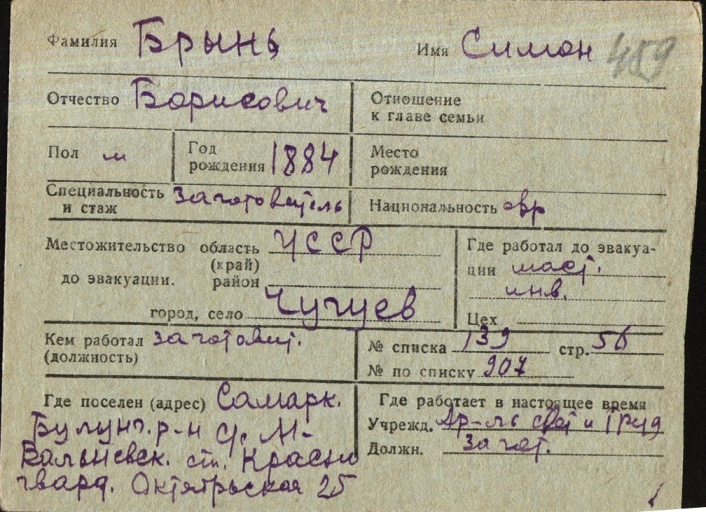 Фамилия Брынь Имя Симон 489
Отчество Борисович Отношение к главе семьи
Пол м Год рождения 1884 Место рождения
Специальность и стаж заготовитель Национальность евр
Местожительство до эвакуации. область (край) УССР
район
город, село Чугуев
Где работал до эвакуа-
ции маст.
инв.
Цех
Кем работал (должность) заготовит.
№ списка 139 стр. 56
№ по списку 907
Где поселен (адрес) Самарк.
Булунг. р-н
ст. Красно
гвард. Октябрьская 25
Где работает в настоящее время
Учрежд. Ар-ль свет и труд
Должн. загот.